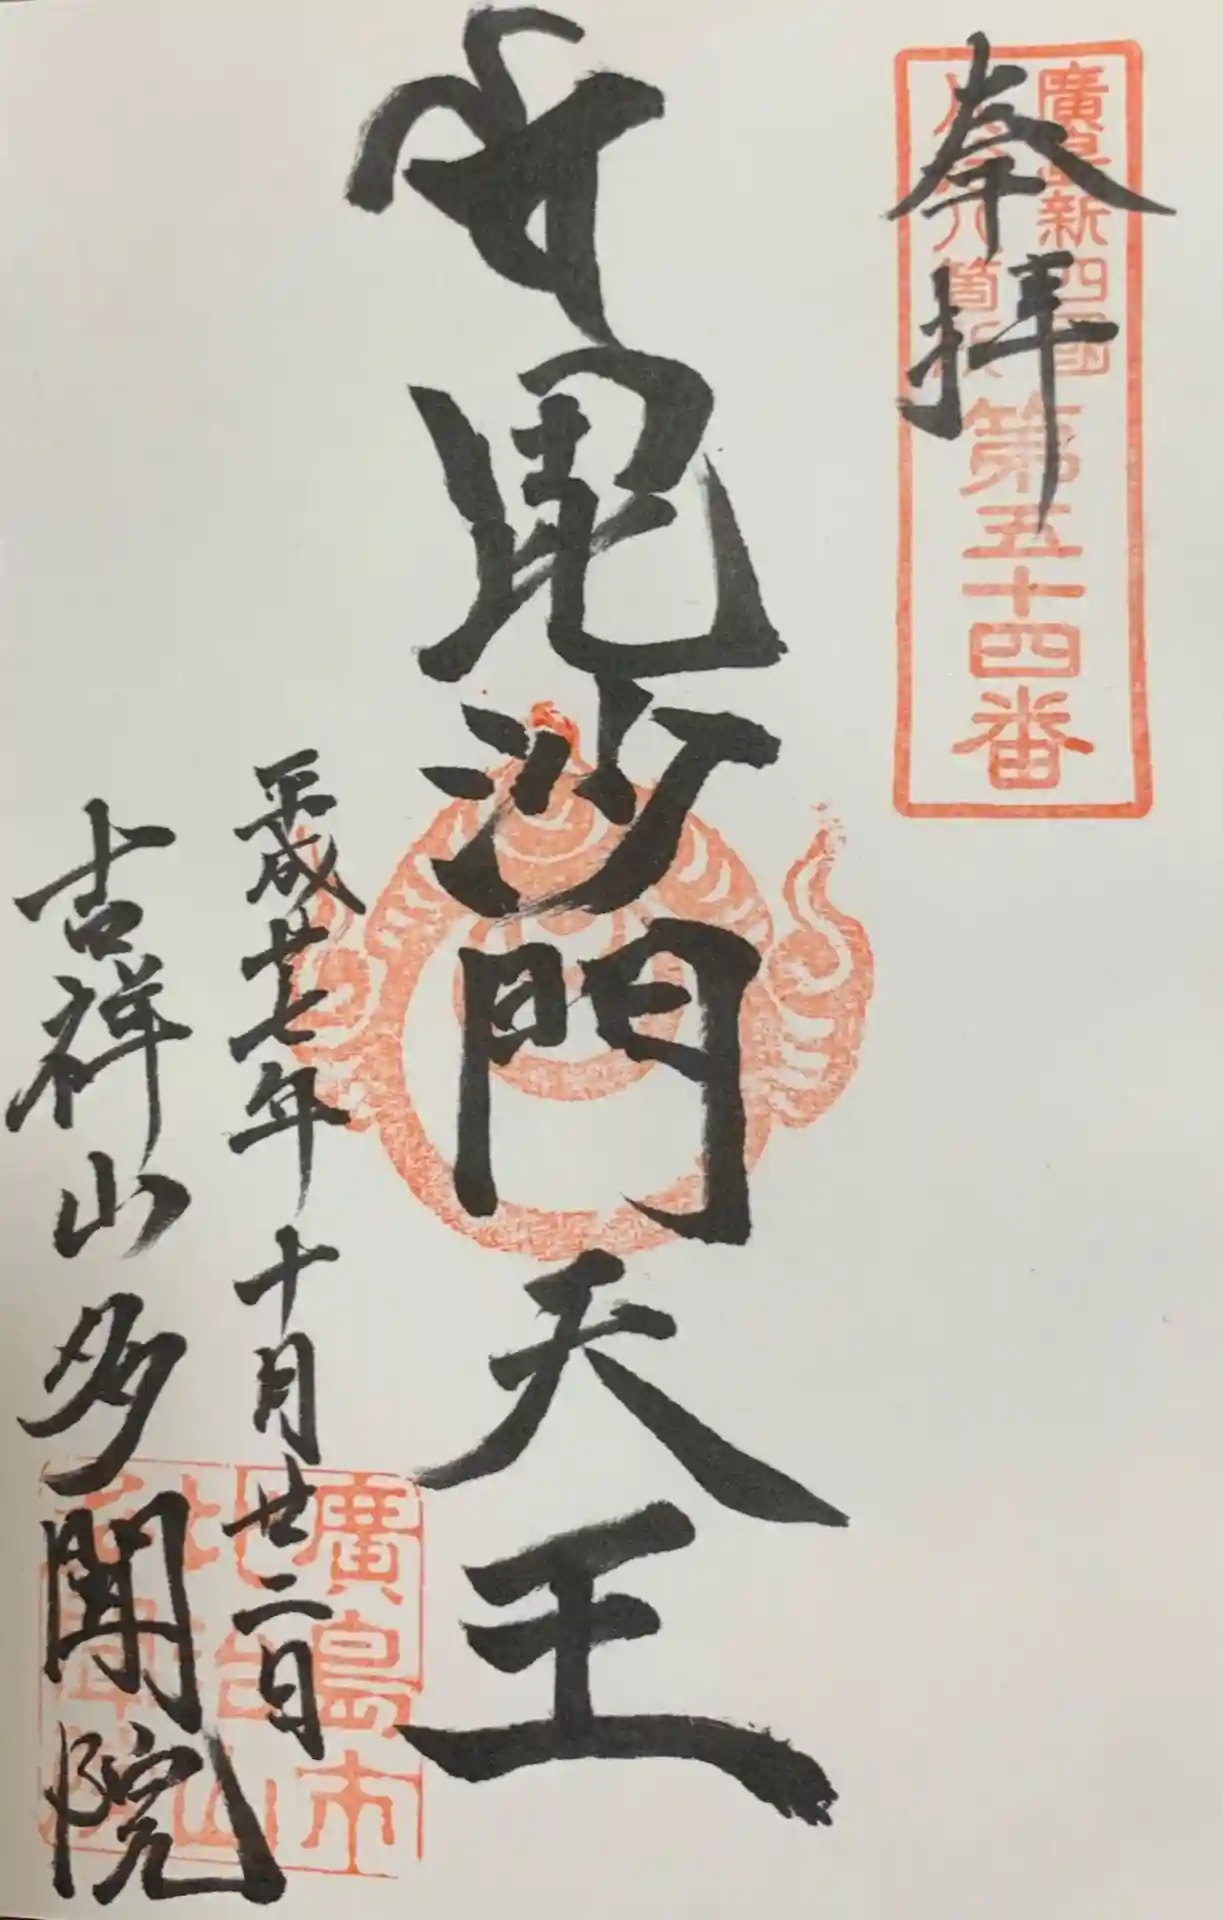 奉拝
廣島新四國
八十八箇所
第五十四番
毘沙門天王
平成廿七年十月廿二日
吉祥山多聞院
廣島市
比治山
多聞院